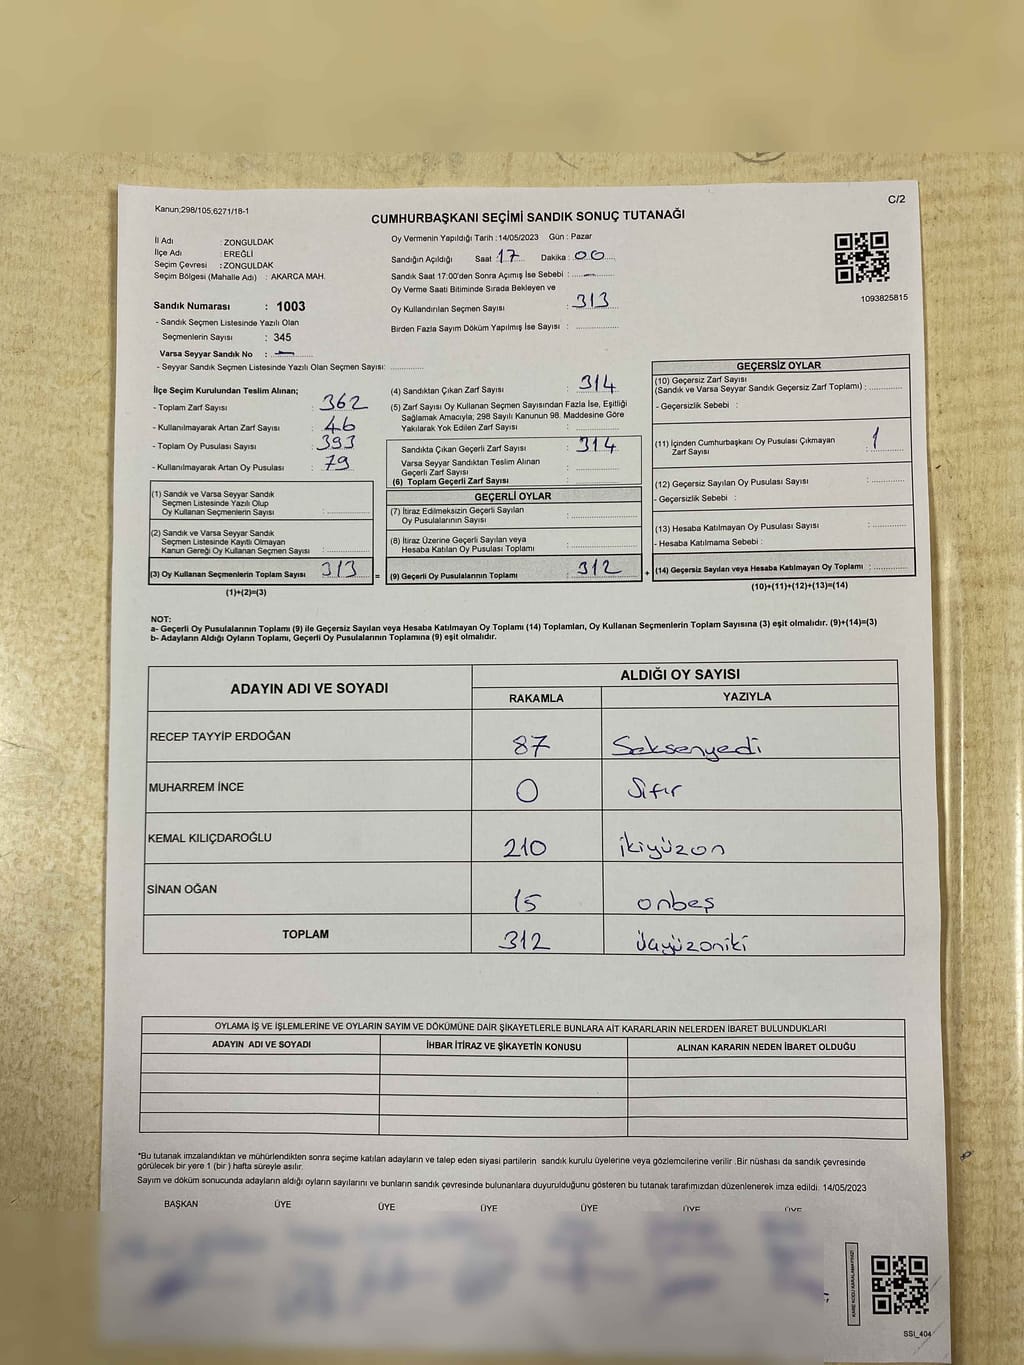 Kanun;298/105,6271/18-1
C/2
CUMHURBAŞKANI SEÇİMİ SANDIK SONUÇ TUTANAĞI
İl Adı : ZONGULDAK
İlçe Adı : EREĞLİ
Seçim Çevresi : ZONGULDAK
Seçim Bölgesi (Mahalle Adı) : AKARCA MAH.
Sandık Numarası : 1003
- Sandık Seçmen Listesinde Yazılı Olan
Seçmenlerin Sayısı : 345
Varsa Seyyar Sandık No : —
- Seyyar Sandık Seçmen Listesinde Yazılı Olan Seçmen Sayısı: ............
Oy Vermenin Yapıldığı Tarih : 14/05/2023 Gün : Pazar
Sandığın Açıldığı Saat 17 Dakika : 00
Sandık Saat 17:00'den Sonra Açımış İse Sebebi : —
Oy Verme Saati Bitiminde Sırada Bekleyen ve
Oy Kullandırılan Seçmen Sayısı : 313
Birden Fazla Sayım Döküm Yapılmış İse Sayısı : ............
1093825815
İlçe Seçim Kurulundan Teslim Alınan;
- Toplam Zarf Sayısı : 362
- Kullanılmayarak Artan Zarf Sayısı : 46
- Toplam Oy Pusulası Sayısı : 393
- Kullanılmayarak Artan Oy Pusulası : 79
(1) Sandık ve Varsa Seyyar Sandık
Seçmen Listesinde Yazılı Olup
Oy Kullanan Seçmenlerin Sayısı : ............
(2) Sandık ve Varsa Seyyar Sandık
Seçmen Listesinde Kayıtlı Olmayan
Kanun Gereği Oy Kullanan Seçmen Sayısı : ............
(3) Oy Kullanan Seçmenlerin Toplam Sayısı 313
(1)+(2)=(3)
=
(4) Sandıktan Çıkan Zarf Sayısı : 314
(5) Zarf Sayısı Oy Kullanan Seçmen Sayısından Fazla İse, Eşitliği
Sağlamak Amacıyla; 298 Sayılı Kanunun 98. Maddesine Göre
Yakılarak Yok Edilen Zarf Sayısı : ............
Sandıkta Çıkan Geçerli Zarf Sayısı : 314
Varsa Seyyar Sandıktan Teslim Alınan
Geçerli Zarf Sayısı : ............
(6) Toplam Geçerli Zarf Sayısı : ............
GEÇERLİ OYLAR
(7) İtiraz Edilmeksizin Geçerli Sayılan
Oy Pusulalarının Sayısı : ............
(8) İtiraz Üzerine Geçerli Sayılan veya
Hesaba Katılan Oy Pusulası Toplamı : ............
(9) Geçerli Oy Pusulalarının Toplamı : 312
+
GEÇERSİZ OYLAR
(10) Geçersiz Zarf Sayısı
(Sandık ve Varsa Seyyar Sandık Geçersiz Zarf Toplamı) : ............
- Geçersizlik Sebebi :
(11) İçinden Cumhurbaşkanı Oy Pusulası Çıkmayan
Zarf Sayısı : 1
(12) Geçersiz Sayılan Oy Pusulası Sayısı : ............
- Geçersizlik Sebebi :
(13) Hesaba Katılmayan Oy Pusulası Sayısı : ............
- Hesaba Katılmama Sebebi :
(14) Geçersiz Sayılan veya Hesaba Katılmayan Oy Toplamı : ............
(10)+(11)+(12)+(13)=(14)
NOT:
a- Geçerli Oy Pusulalarının Toplamı (9) ile Geçersiz Sayılan veya Hesaba Katılmayan Oy Toplamı (14) Toplamları, Oy Kullanan Seçmenlerin Toplam Sayısına (3) eşit olmalıdır. (9)+(14)=(3)
b- Adayların Aldığı Oyların Toplamı, Geçerli Oy Pusulalarının Toplamına (9) eşit olmalıdır.
ADAYIN ADI VE SOYADI ALDIĞI OY SAYISI
RAKAMLA YAZIYLA
RECEP TAYYİP ERDOĞAN 87 Seksenyedi
MUHARREM İNCE 0 Sıfır
KEMAL KILIÇDAROĞLU 210 ikiyüzon
SİNAN OĞAN 15 onbeş
TOPLAM 312 üçyüzoniki
OYLAMA İŞ VE İŞLEMLERİNE VE OYLARIN SAYIM VE DÖKÜMÜNE DAİR ŞİKAYETLERLE BUNLARA AİT KARARLARIN NELERDEN İBARET BULUNDUKLARI
ADAYIN ADI VE SOYADI İHBAR İTİRAZ VE ŞİKAYETİN KONUSU ALINAN KARARIN NEDEN İBARET OLDUĞU
*Bu tutanak imzalandıktan ve mühürlendikten sonra seçime katılan adayların ve talep eden siyasi partilerin sandık kurulu üyelerine veya gözlemcilerine verilir .Bir nüshası da sandık çevresinde
görülecek bir yere 1 (bir ) hafta süreyle asılır.
Sayım ve döküm sonucunda adayların aldığı oyların sayılarını ve bunların sandık çevresinde bulunanlara duyurulduğunu gösteren bu tutanak tarafımızdan düzenlenerek imza edildi. 14/05/2023
BAŞKAN ÜYE ÜYE ÜYE ÜYE ÜYE ÜYE
KARE KODU KARALAMAYINIZ!
SSI_404